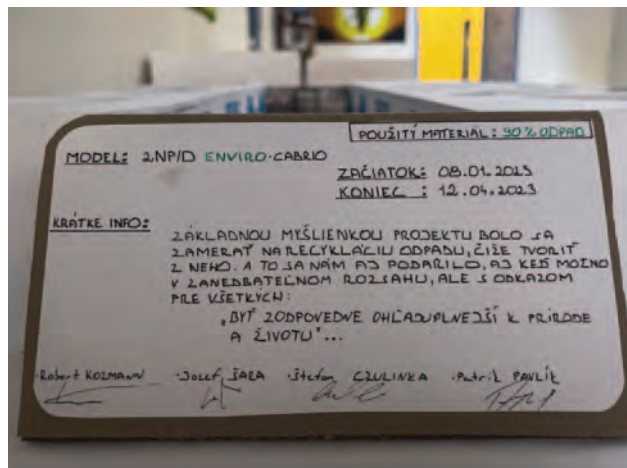 POUŽITÝ MATERIÁL: 90% ODPAD
MODEL: 2NP/D ENVIRO-CABRIO
ZAČIATOK: 08.01.2023
KONIEC : 12.04.2023
KRÁTKE INFO:
ZÁKLADNOU MYŠLIENKOU PROJEKTU BOLO SA
ZAMERAŤ NA RECYKLÁCIU ODPADU, ČIŽE TVORIŤ
Z NEHO. A TO SA NÁM AJ PODARILO, AJ KEĎ MOŽNO
V ZANEDBATEĽNOM ROZSAHU, ALE S ODKAZOM
PRE VŠETKÝCH:
„BYŤ ZODPOVEDNE OHĽADUPLNEJŠÍ K PRÍRODE
A ŽIVOTU"...
·Robert KOZMANN ·Jozef ŠARA ·Štefan CZULINKA ·Patrik PAVLÍK